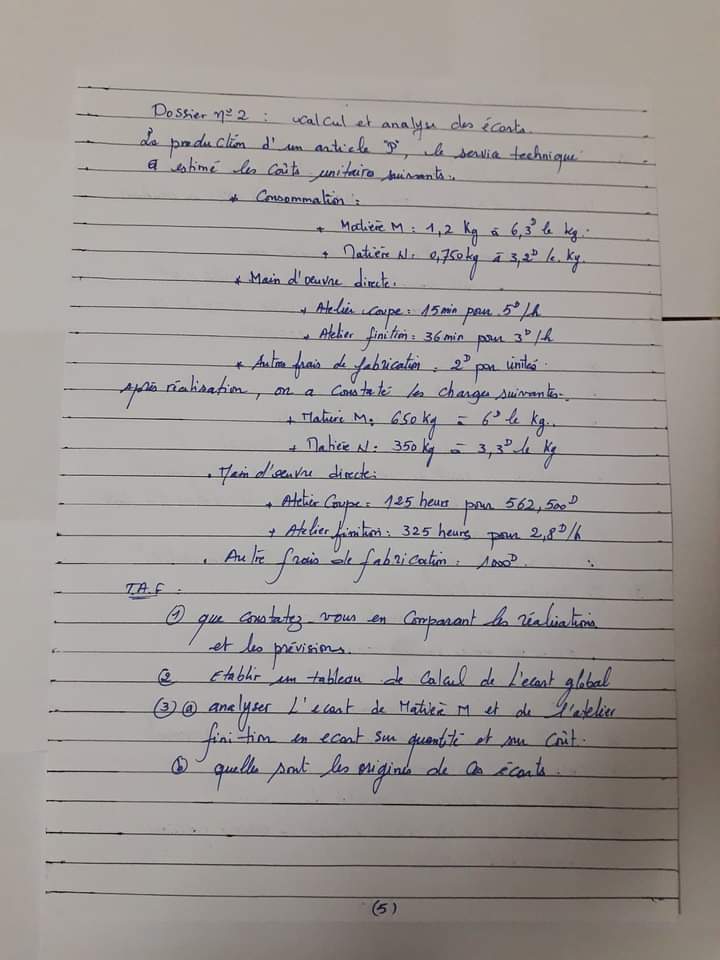 Dossier n° 2 : calcul et analyse des écarts.
La production d'un article "P", le service technique
a estimé les coûts unitaires suivants :
* Consommation :
* Matière M : 1,2 Kg à 6,3ᴰ le kg.
* Matière N : 0,750 kg à 3,2ᴰ le Kg.
* Main d'oeuvre directe.
* Atelier coupe : 15 min pour 5ᴰ/h
* Atelier finition : 36 min pour 3ᴰ/h
* Autres frais de fabrication : 2ᴰ par unité.
Après réalisation, on a constaté les charges suivantes :
+ Matière M : 650 Kg à 6ᴰ le Kg.
* Matière N : 350 kg à 3,3ᴰ le Kg
. Main d'oeuvre directe :
* Atelier Coupe : 125 heurs pour 562,500ᴰ
+ Atelier finition : 325 heurs pour 2,8ᴰ/h
. Autre frais de fabrication : 1000ᴰ.
T.A.F :
① que constatez-vous en comparant les réalisations
et les prévisions.
② Etablir un tableau de calcul de l'ecart global
③ ⓐ analyser l'ecart de Matière M et de l'atelier
finition en ecart sur quantité et sur Coût.
ⓑ quelles sont les origines de ces écarts.
(5)